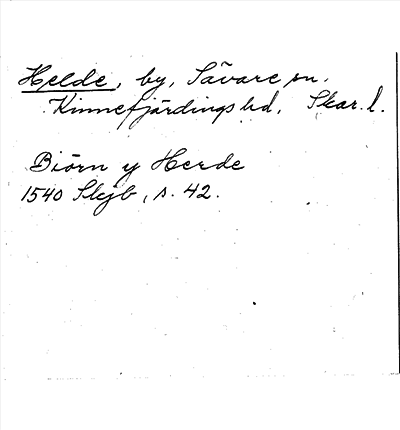 Helde, by, Sävare sn.
Kinnefjärdings hd, Skar. l.
Biörn y Herde
1540 Skjb, s. 42.